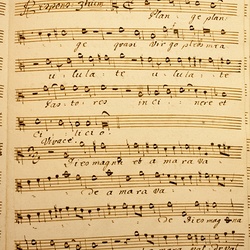 Respons: 3tium
Plan ge plan
ge quasi Virgo plebs mea
u lu la te u lu la te
Pas to res in ci ne re et
Ci li cio
Vivace
Dies magna et a ma ra va
de a ma ra va
Dies magna